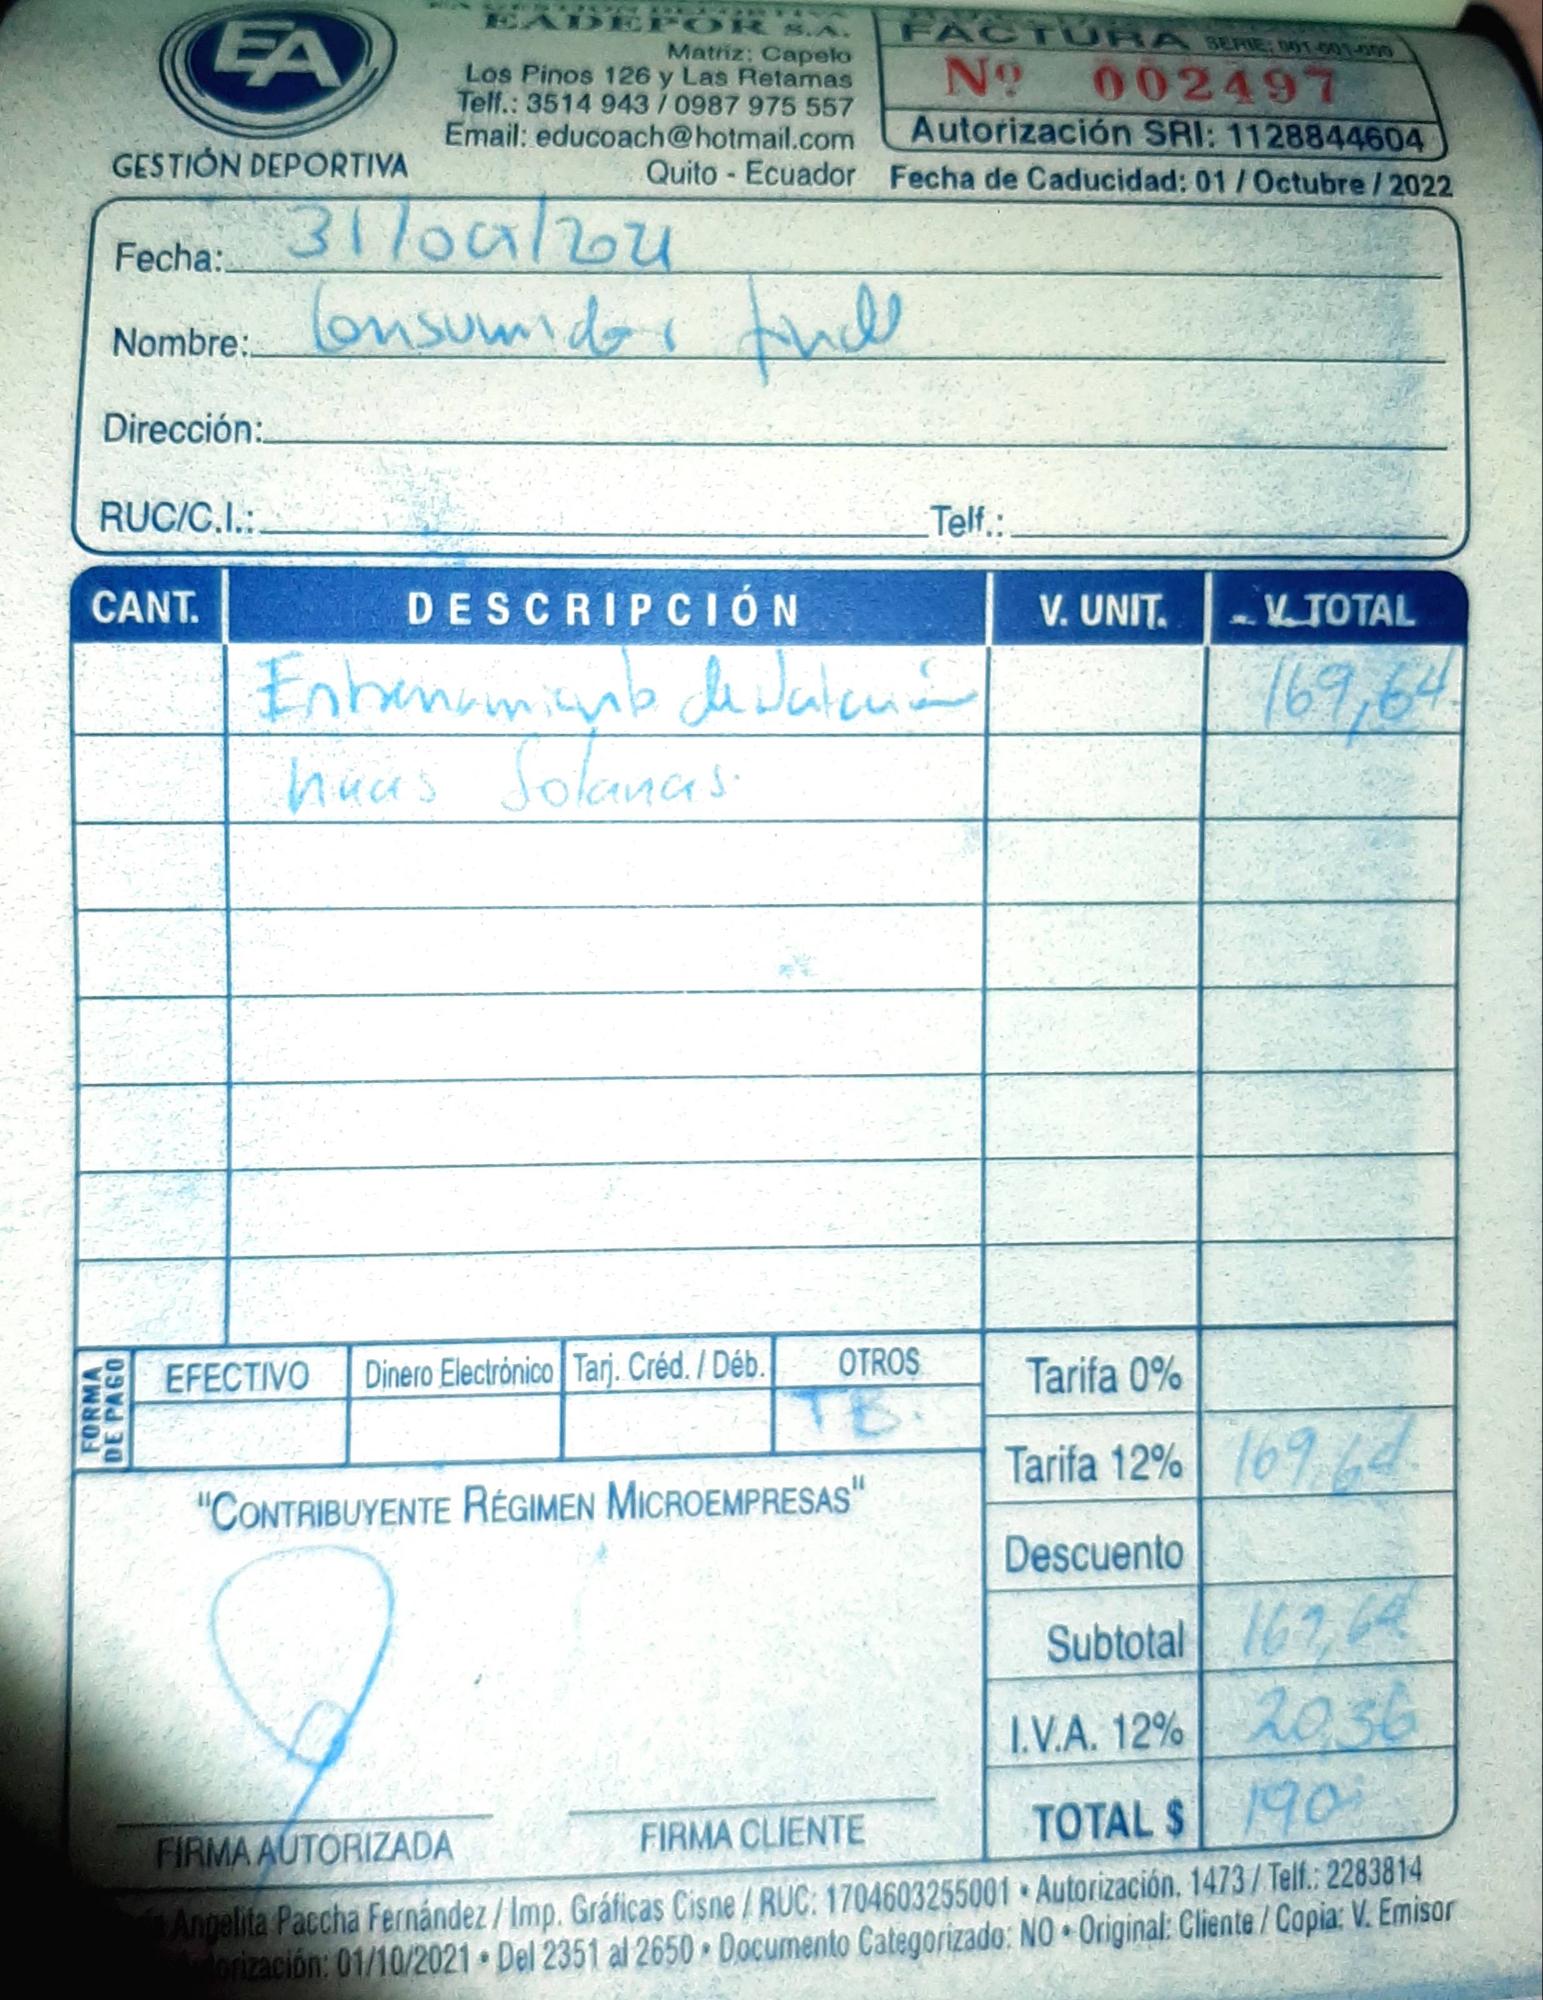 EA
GESTIÓN DEPORTIVA
EADEPOR S.A.
Matriz: Capelo
Los Pinos 126 y Las Retamas
Telf.: 3514 943 / 0987 975 557
Email: educoach@hotmail.com
Quito - Ecuador
FACTURA SERIE: 001-001-000
Nº 002497
Autorización SRI: 1128844604
Fecha de Caducidad: 01 / Octubre / 2022
Fecha: 31/oct/2021
Nombre: Consumidor final
Dirección:
RUC/C.I.: Telf.:
CANT. DESCRIPCIÓN V. UNIT. V. TOTAL
Entrenamiento de Natación 169,64
Solanas.
FORMA DE PAGO
EFECTIVO Dinero Electrónico Tarj. Créd. / Déb. OTROS
TB.
Tarifa 0%
Tarifa 12% 169,64
Descuento
Subtotal 169,64
I.V.A. 12% 20,36
TOTAL $ 190
"CONTRIBUYENTE RÉGIMEN MICROEMPRESAS"
FIRMA AUTORIZADA FIRMA CLIENTE
Angelita Paccha Fernández / Imp. Gráficas Cisne / RUC: 1704603255001 • Autorización. 1473 / Telf.: 2283814
01/10/2021 • Del 2351 al 2650 • Documento Categorizado: NO • Original: Cliente / Copia: V. Emisor